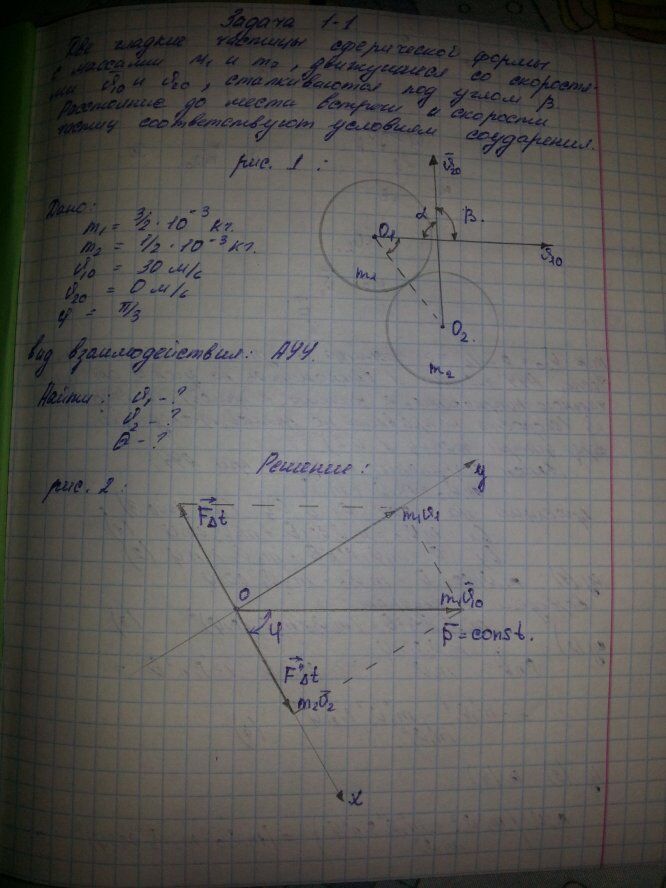 Задача 1-1
Две гладкие частицы сферической формы
с массами m₁ и m₂, движущиеся со скоростя-
ми υ₁₀ и υ₂₀, сталкиваются под углом β.
Расстояние до места встречи и скорости
частиц соответствуют условиям соударения.
рис. 1 :
υ̅₂₀
α
β.
O₁
υ̅₁₀
m₁
O₂
m₂
Дано:
m₁ = 3/2 · 10⁻³ кг.
m₂ = 1/2 · 10⁻³ кг.
υ₁₀ = 30 м/с
υ₂₀ = 0 м/с
φ = π/3
вид взаимодействия: АУУ.
Найти: υ₁ - ?
υ₂ - ?
Q - ?
Решение:
рис. 2 :
y
F⃗Δt
m₁υ̅₁
O
m₁υ̅₁₀
φ
p̅ = const.
F⃗'Δt
m₂υ̅₂
x